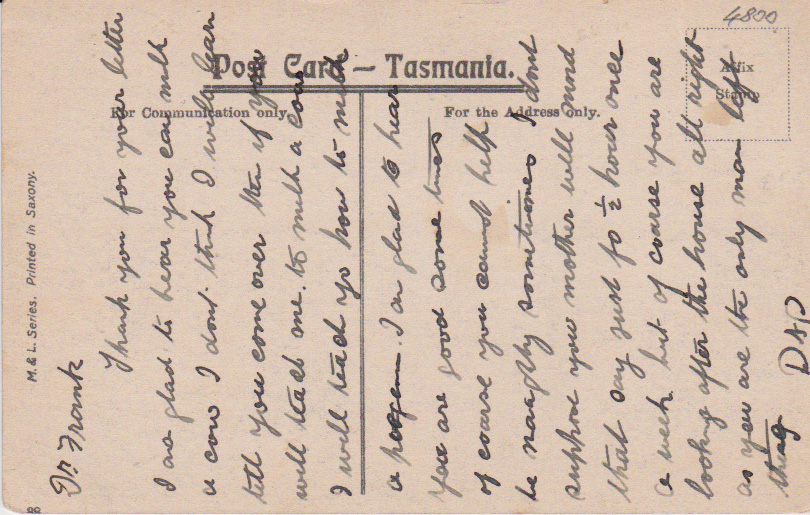 4800
Post Card – Tasmania.
For Communication only.
For the Address only.
Affix
Stamp
M. & L. Series. Printed in Saxony.
Dr Frank
Thank you for your letter
I am glad to hear you can milk
a cow I dont think I will lean
till you come over then if you
will teach me. to milk a cow
I will teach yo how to milk
a I am glad to hear
you are good some times
of coarse you cannot help
be naughty sometimes I dont
suppose you mother will mind
that say just fo ½ hour once
a week but of coarse you are
looking after the house all right
as you are the only man left
DAD